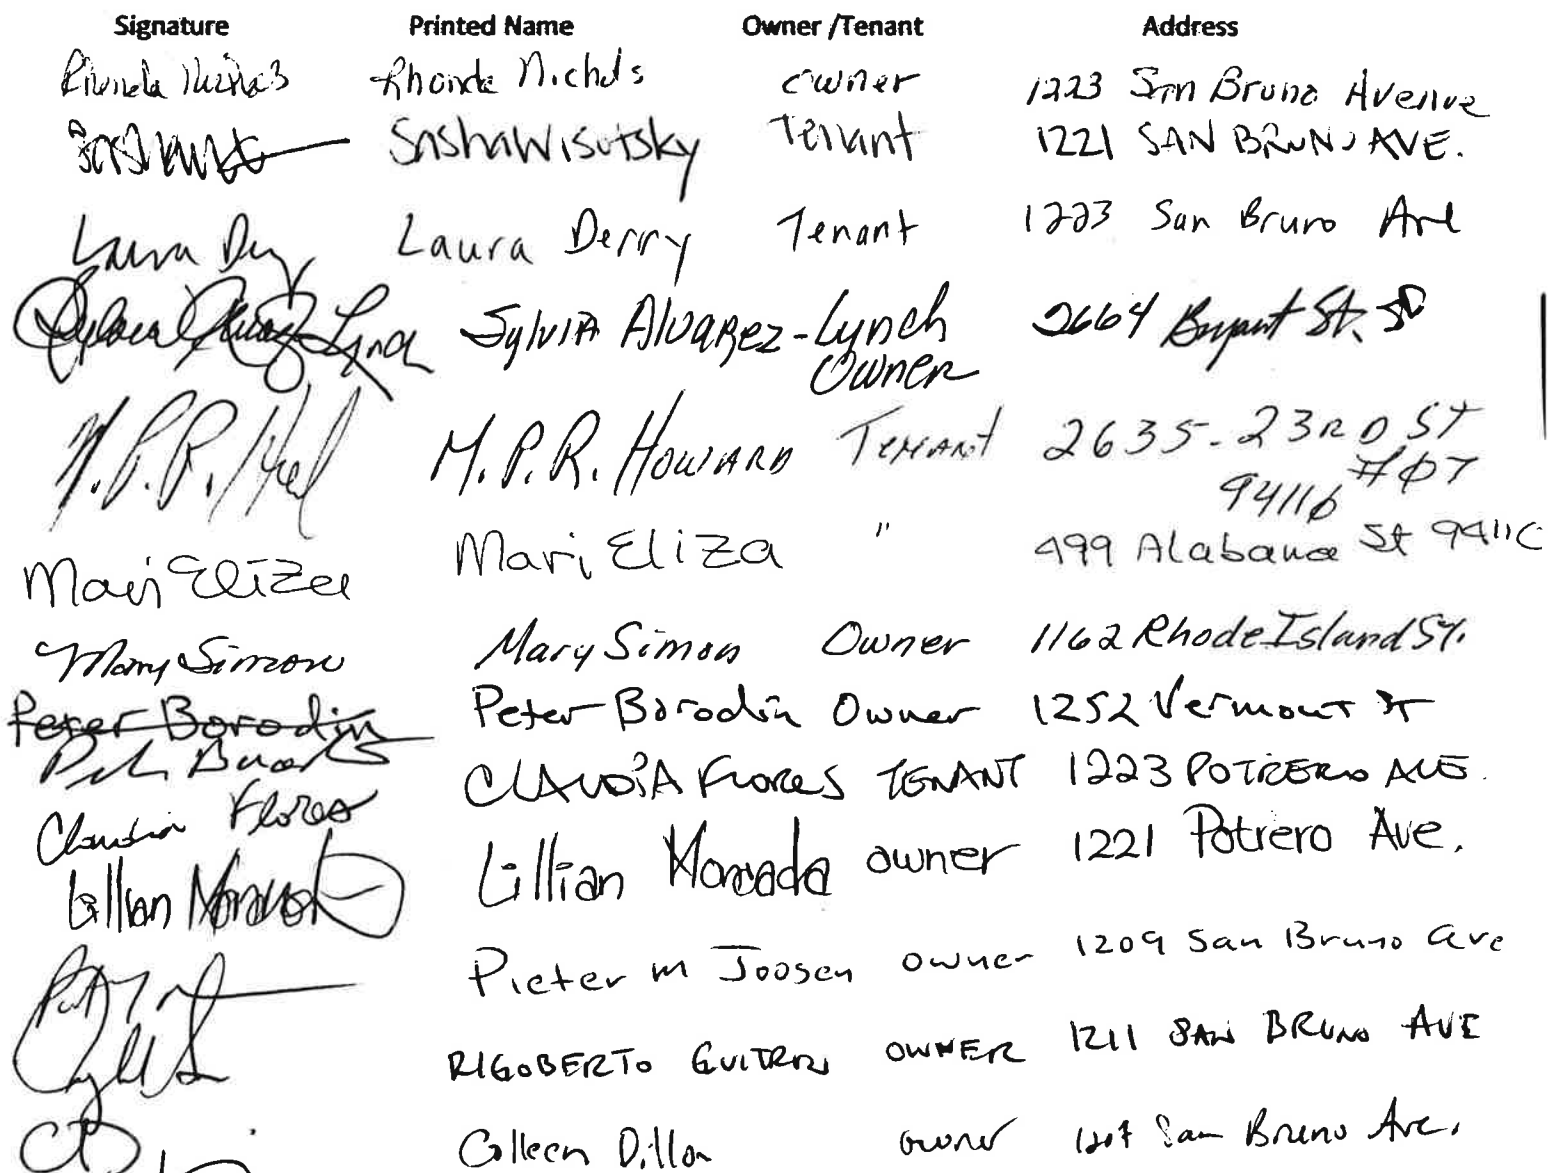 Signature Printed Name Owner /Tenant Address
Rhonda Nichols Rhonda Nichols owner 1223 San Bruno Avenue
Sasha Wisotsky Tenant 1221 SAN BRUNO AVE.
Laura Derry Laura Derry Tenant 1223 San Bruno Ave
Sylvia Alvarez-Lynch Sylvia Alvarez-Lynch 2664 Bryant St.
Owner
M.P.R. Howard M.P.R. Howard Tenant 2635-23RD ST
#07
94110
Mari Eliza Mari Eliza " 499 Alabama St 94110
Mary Simon Mary Simon Owner 1162 Rhode Island St.
Peter Borodin Peter Borodin Owner 1252 Vermont St
Claudia Flores CLAUDIA FLORES TENANT 1223 POTRERO AVE.
Lillian Moncada Lillian Moncada owner 1221 Potrero Ave.
Pieter M Joosen owner 1209 San Bruno ave
RIGOBERTO GUITRON OWNER 1211 SAN BRUNO AVE
Colleen Dillon owner San Bruno Ave.